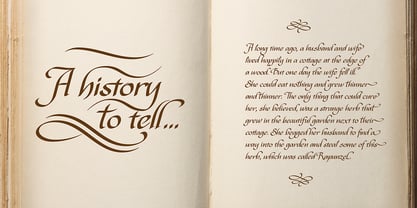 A history
to tell...
A long time ago, a husband and wife
lived happily in a cottage at the edge of
a wood. But one day the wife fell ill.
She could eat nothing and grew thinner
and thinner. The only thing that could cure
her, she believed, was a strange herb that
grew in the beautiful garden next to their
cottage. She begged her husband to find a
way into the garden and steal some of this
herb, which was called Rapunzel.